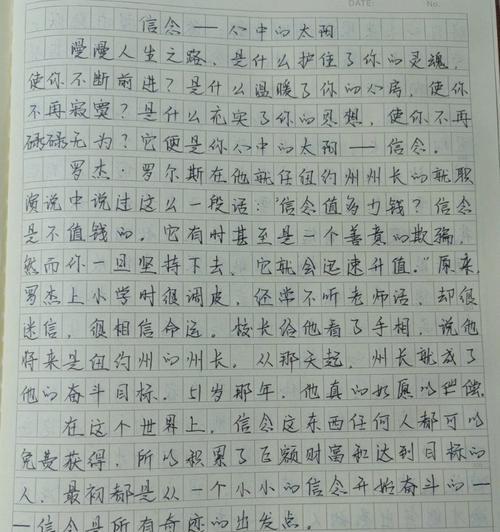 DATE: No.
信念——心中的太阳
漫漫人生之路,是什么护住了你的灵魂,
使你不断前进?是什么温暖了你的心房,使你
不再寂寞?是什么充实了你的思想,使你不再
碌碌无为?它便是你心中的太阳——信念。
罗杰·罗尔斯在他就任纽约州州长的就职
演说中说过这么一段话:“信念值多少钱?信念
是不值钱的,它有时甚至是一个善意的欺骗,
然而你一旦坚持下去,它就会迅速升值。”原来,
罗杰上小学时很调皮,经常不听老师话,却很
迷信,很相信命运。校长给他看了手相,说他
将来是纽约州的州长。从那天起,州长就成了
他的奋斗目标。51岁那年,他真的如愿以偿。
在这个世界上,信念这东西任何人都可以
免费获得,所以积累了巨额财富和达到目标的
人,最初都是从一个小小的信念开始奋斗的—
—信念是所有奇迹的出发点。